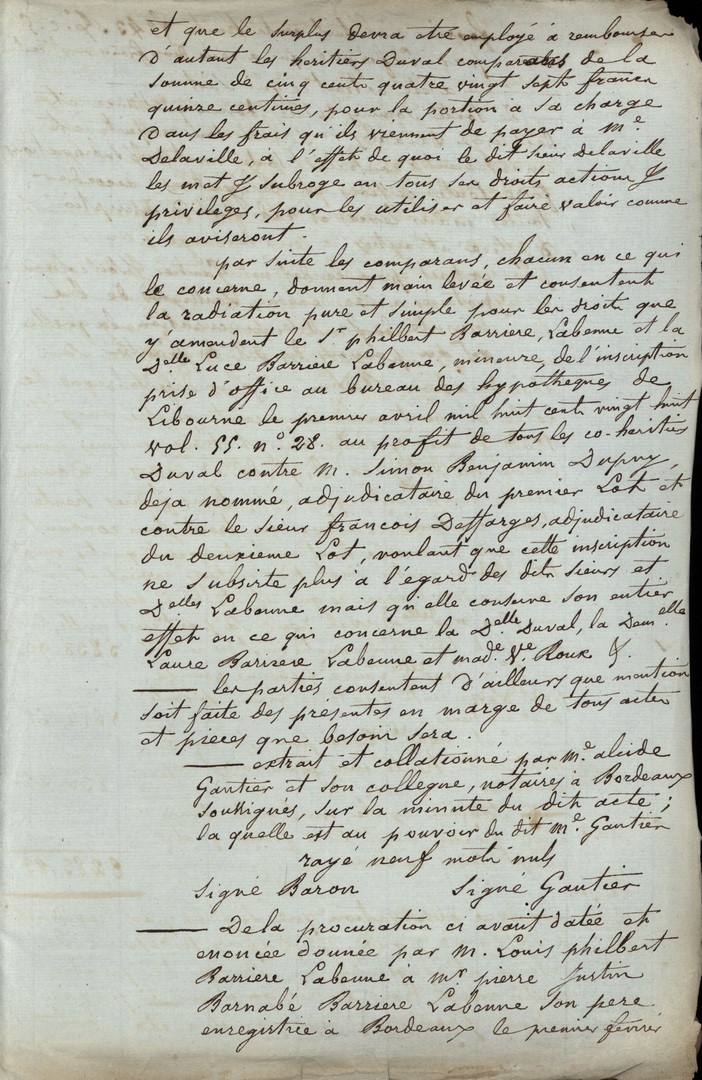 et que le surplus devra etre employé à rembourser
d'autant les heritiers Duval comparants de la
somme de cinq cents quatre vingt sept francs
quinze centimes, pour la portion à sa charge
dans les frais qu'ils viennent de payer à Me
Delaville, à l'effet de quoi le dit sieur Delaville
les met & subroge en tous ses droits actions &
privileges, pour les utiliser et faire valoir comme
ils aviseront.
par suite les comparans, chacun en ce qui
le concerne, donnent main levée et consentent
la radiation pure et simple pour les droits que
y amendent le Sr philbert Barriere, Labenne et la
Delle Luce Barriere Labenne, mineure, de l'inscription
prise d'office au bureau des hypotheques de
Libourne le premier avril mil huit cents vingt huit
vol. 55. no. 28. au profit de tous les co-heritiers
Duval contre M. Simon Benjamin Dupuy,
deja nommé, adjudicataire du premier Lot et
contre le sieur françois Deffarges, adjudicataire
du deuxieme Lot, voulant que cette inscription
ne subsiste plus à l'égard des dits sieurs et
Delles Labenne mais qu'elle conserve son entier
effet en ce qui concerne la Delle Duval, la Demelle
Laure Barriere Labenne et made. Ve. Roux &.
les parties consentent d'ailleurs que mention
soit faite des présentes en marge de tous actes
et pieces que besoin sera.
extrait et collationné par Me alcide
Gautier et son collegue, notaires à Bordeaux
soussignés, sur la minute du dit acte;
la quelle est au pouvoir du dit Me. Gautier
rayé neuf mots nuls
Signé Baron Signé Gautier
De la procuration ci avant datée et
enoncée donnée par M. Louis philbert
Barriere Labenne à Mr pierre Justin
Barnabé Barriere Labenne son pere
enregistrée à Bordeaux le premier février